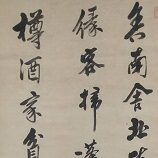 舍南舍北
緣客掃蓬
樽酒家貧